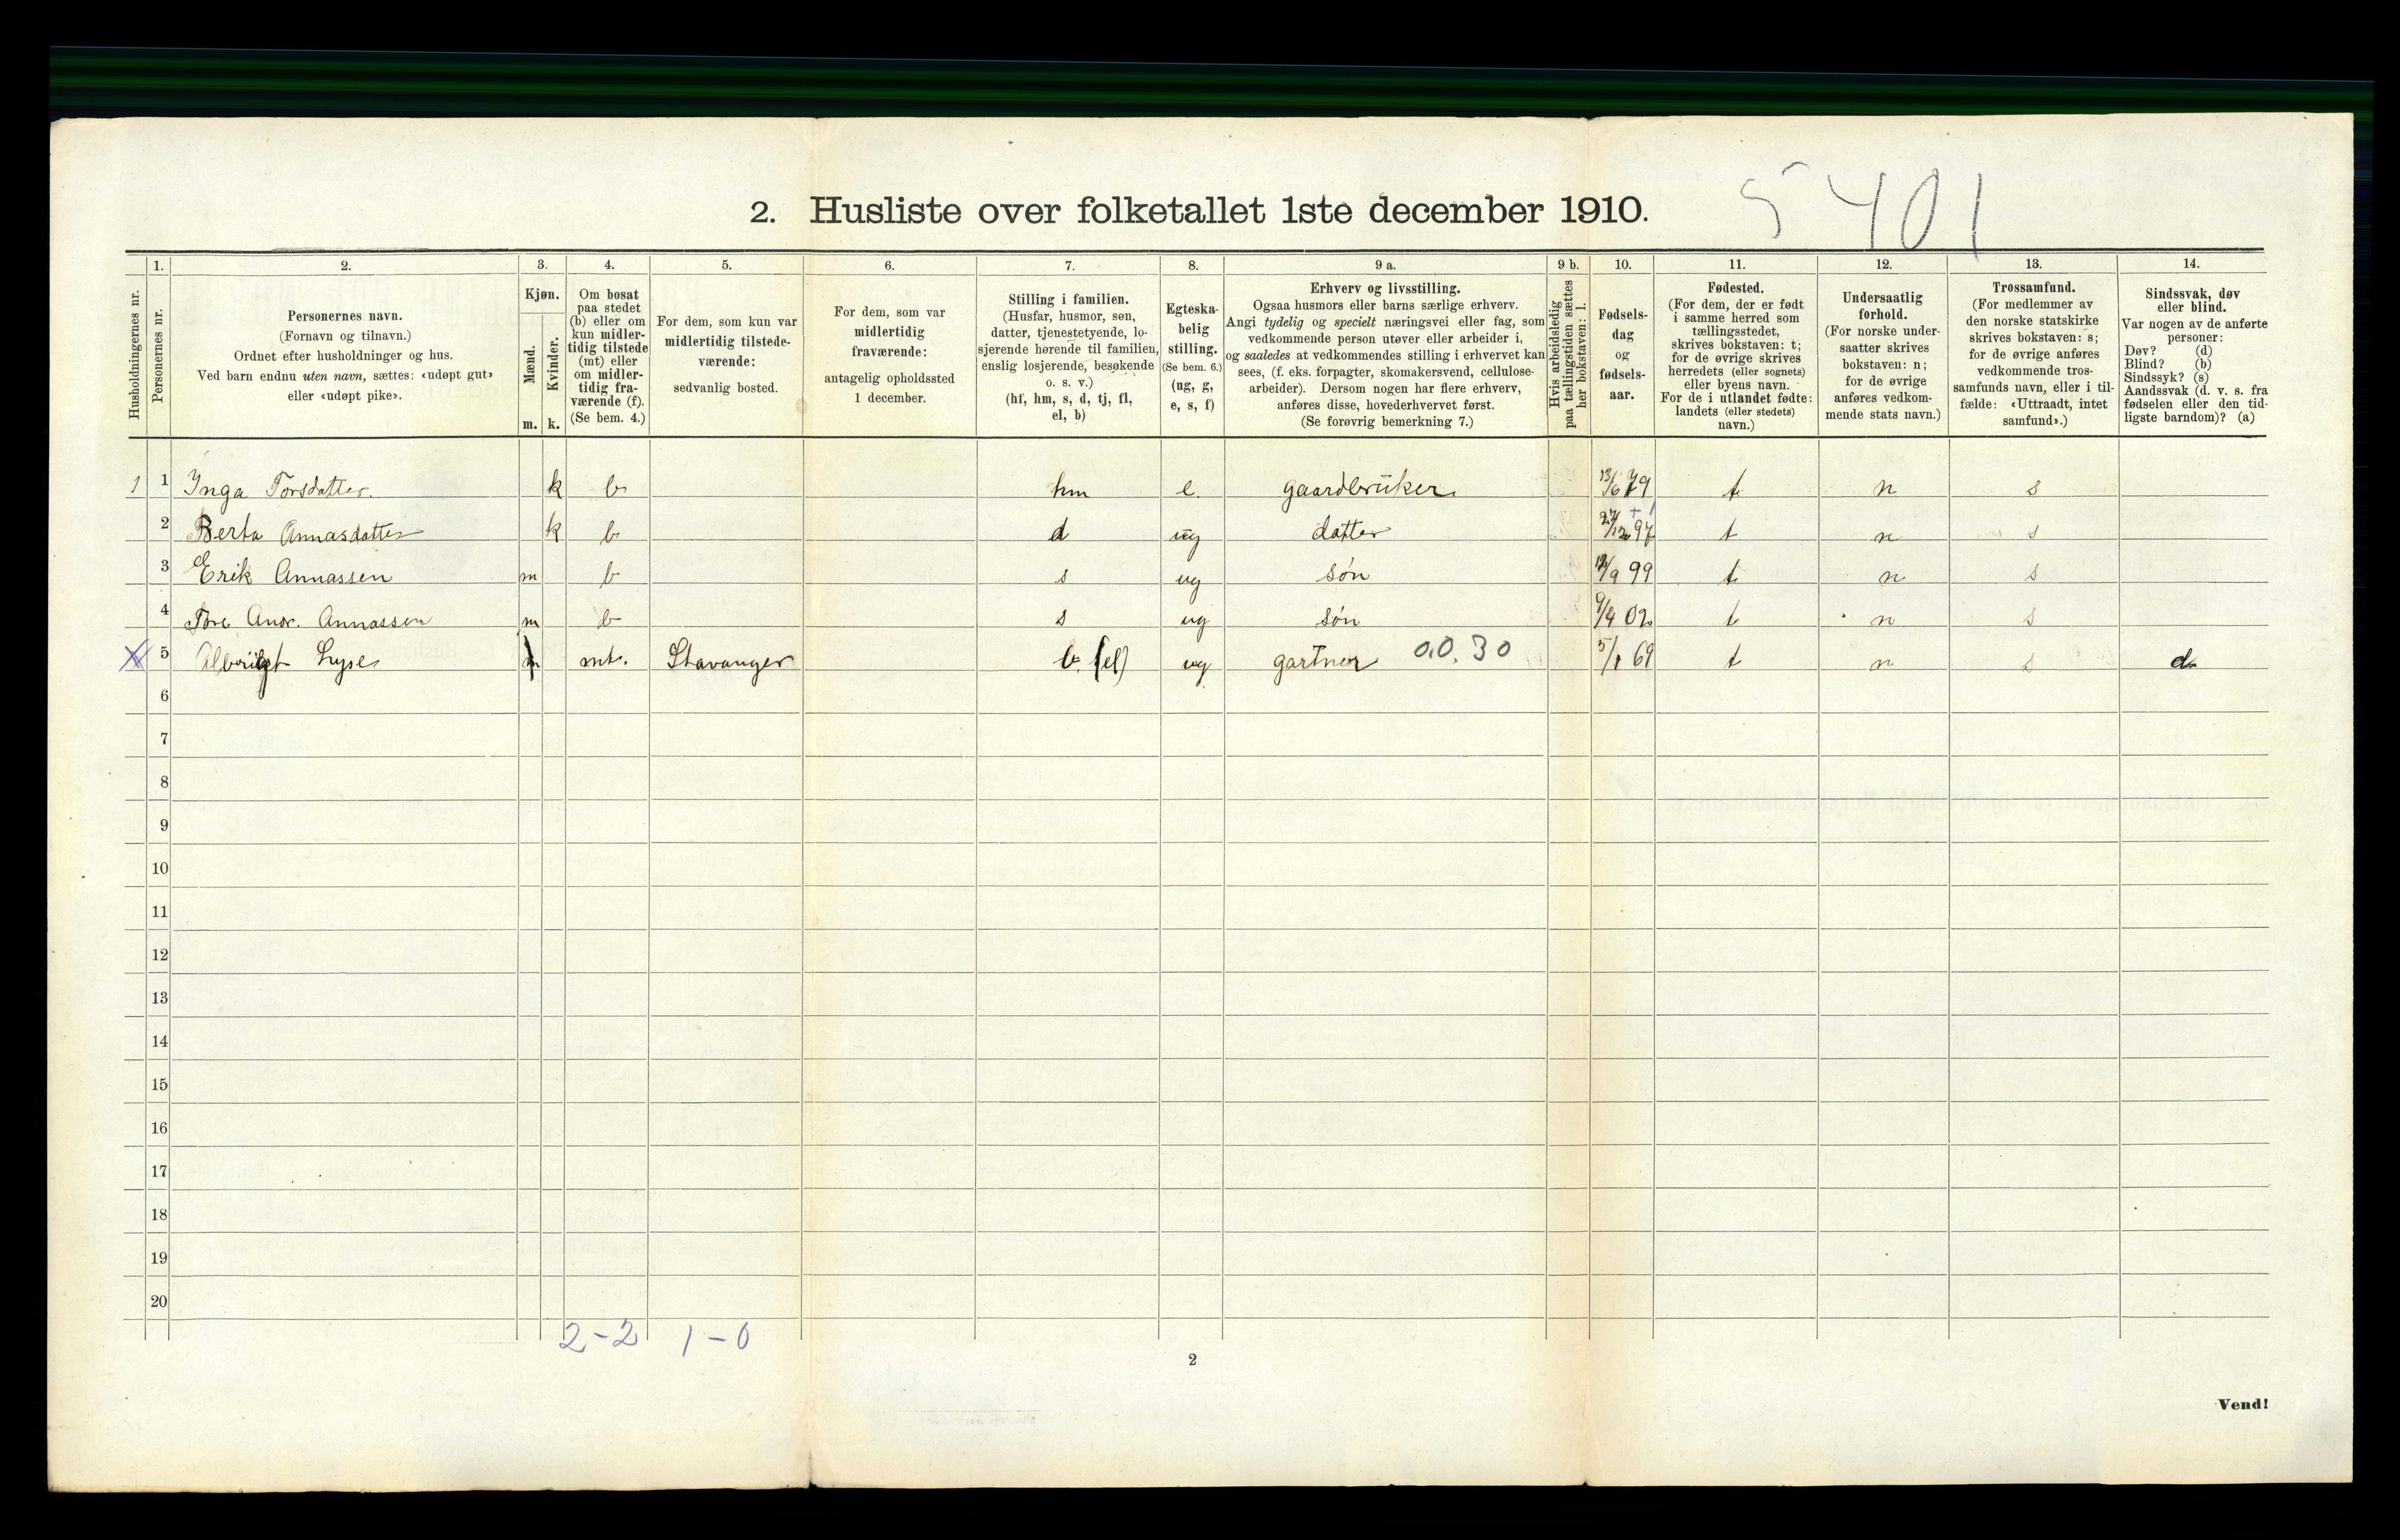 5401
2. Husliste over folketallet 1ste december 1910.
Husholdningernes nr.
1. Personernes nr.
2. Personernes navn.
(Fornavn og tilnavn.)
Ordnet efter husholdninger og hus.
Ved barn endnu uten navn, sættes: «udøpt gut»
eller «udøpt pike».
3. Kjøn.
Mænd. Kvinder.
m. k.
4. Om bosat
paa stedet
(b) eller om
kun midler-
tidig tilstede
(mt) eller
om midler-
tidig fra-
værende (f).
(Se bem. 4.)
5. For dem, som kun var
midlertidig tilstede-
værende:
sedvanlig bosted.
6. For dem, som var
midlertidig
fraværende:
antagelig opholdssted
1 december.
7. Stilling i familien.
(Husfar, husmor, søn,
datter, tjenestetyende, lo-
sjerende hørende til familien,
enslig losjerende, besøkende
o. s. v.)
(hf, hm, s, d, tj, fl,
el, b)
8. Egteska-
belig
stilling.
(Se bem. 6.)
(ug, g,
e, s, f)
9 a. Erhverv og livsstilling.
Ogsaa husmors eller barns særlige erhverv.
Angi tydelig og specielt næringsvei eller fag, som
vedkommende person utøver eller arbeider i,
og saaledes at vedkommendes stilling i erhvervet kan
sees, (f. eks. forpagter, skomakersvend, cellulose-
arbeider). Dersom nogen har flere erhverv,
anføres disse, hovederhvervet først.
(Se forøvrig bemerkning 7.)
9 b. Hvis arbeidsledig
paa tællingstiden sættes
her bokstaven: l.
10. Fødsels-
dag
og
fødsels-
aar.
11. Fødested.
(For dem, der er født
i samme herred som
tællingsstedet,
skrives bokstaven: t;
for de øvrige skrives
herredets (eller sognets)
eller byens navn.
For de i utlandet fødte:
landets (eller stedets)
navn.)
12. Undersaatlig
forhold.
(For norske under-
saatter skrives
bokstaven: n;
for de øvrige
anføres vedkom-
mende stats navn.)
13. Trossamfund.
(For medlemmer av
den norske statskirke
skrives bokstaven: s;
for de øvrige anføres
vedkommende tros-
samfunds navn, eller i til-
fælde: «Uttraadt, intet
samfund».)
14. Sindssvak, døv
eller blind.
Var nogen av de anførte
personer:
Døv? (d)
Blind? (b)
Sindssyk? (s)
Aandssvak (d. v. s. fra
fødselen eller den tid-
ligste barndom)? (a)
1 1 Inga Torsdatter k b hm e gaardbruker 13/6 79 t n s
2 Berta Annasdatter k b d ug datter 27/12 97 t n s
3 Erik Annassen m b s ug søn 99 t n s
4 Tore Andr. Annassen m b s ug søn 9/4 02 t n s
5 Lyse m mt. Stavanger b (el) ug gartner 0.0.30 5/1 69 t n s d
6
7
8
9
10
11
12
13
14
15
16
17
18
19
20
2-2 1-0
2
Vend!